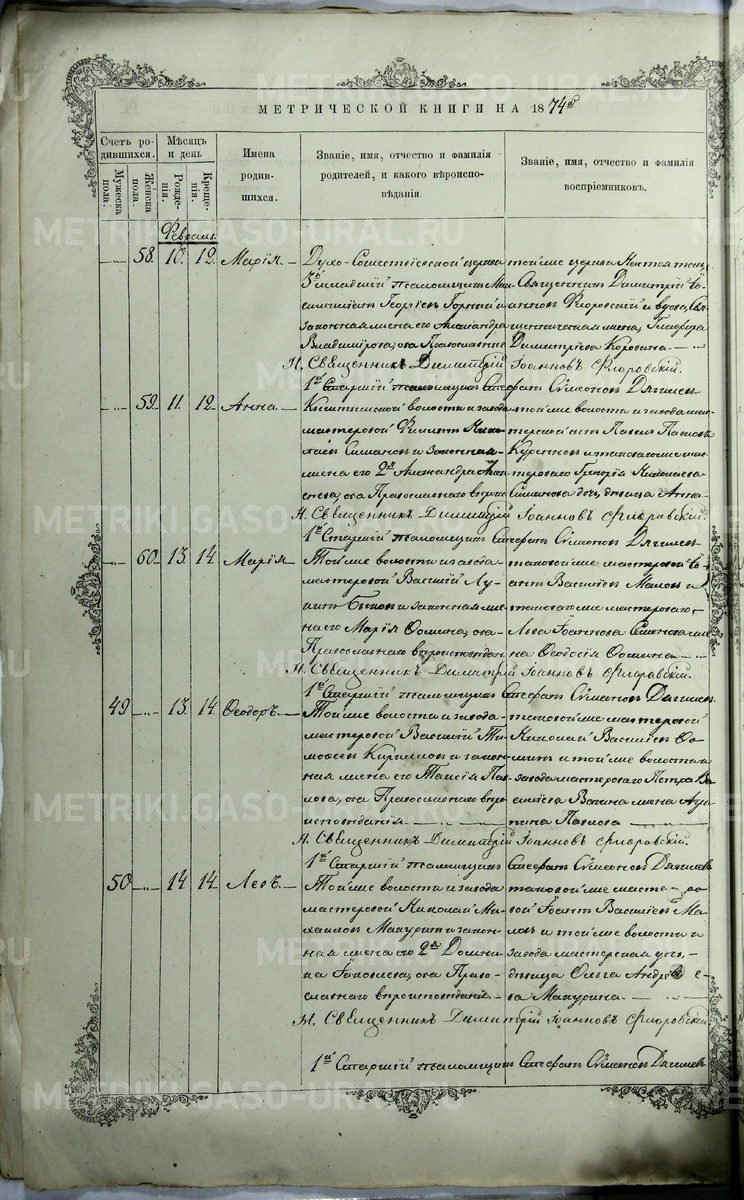 МЕТРИЧЕСКОЙ КНИГИ НА 1874й
Счетъ родившихся.
Мужеска пола.
Женска пола.
Мѣсяцъ и день
Рожденія.
Крещенія.
Имена родившихся.
Званіе, имя, отчество и фамилія родителей, и какого вѣроисповѣданія.
Званіе, имя, отчество и фамилія воспріемниковъ.
Февраль.
58. 10. 12. Марія.
Духо-Сошествіевской церкви
младшій псаломщикъ
Георгіевъ
законная жена его Александра
Владимірова, оба Православные
той же церкви Настоятель,
Священникъ Димитрій Іо-
анновъ Флоровскій и вдова, Свя-
щенническая жена, Глафира
Димитріева Коровина
Н. Священникъ Димитрій Іоанновъ Флоровскій.
1й Старшій псаломщикъ Стефанъ Сѵмеоновъ Дягилевъ
59. 11. 12. Анна.
Кыштымской волости и завода
мастеровой Филиппъ Нико-
лаевъ Симановъ и законная
жена его 2й Александра
оба Православнаго
той же волости и завода мас-
терскій сынъ Павелъ Павловъ
и таковаго же мас-
тероваго Григорія Николаева
Симанова дочь, дѣвица Анна
Н. Священникъ Димитрій Іоанновъ Флоровскій.
1й Старшій псаломщикъ Стефанъ Сѵмеоновъ Дягилевъ
60. 13. 14. Марія.
Той же волости и завода
мастеровой Василій Лу-
кинъ Быковъ и законная же-
на его Марія Ѳомина, оба
Православнаго вѣроисповѣданія
таковой же мастеровой Іо-
аннъ Васильевъ Маловъ и
таковаго же мастероваго
Льва Іоаннова Семенова же-
на Ѳеодосія Ѳомина
Н. Священникъ Димитрій Іоанновъ Флоровскій.
1й Старшій псаломщикъ Стефанъ Сѵмеоновъ Дягилевъ
49. 13. 14. Ѳеодоръ.
Той же волости и завода
мастеровой Василій Ти-
моѳеевъ Кирилловъ и закон-
ная жена его Таисія Пав-
лова, оба Православнаго вѣро-
исповѣданія.
таковой же мастеровой
Николай Васильевъ Ѳо-
минъ и той же волости и
завода мастероваго Петра Ва-
сильева Вагина жена Агри-
пина Павлова
Н. Священникъ Димитрій Іоанновъ Флоровскій.
1й Старшій псаломщикъ Стефанъ Сѵмеоновъ Дягилевъ
50 14 14. Левъ.
Той же волости и завода
мастеровой Николай Ми-
хаиловъ Мапуринъ и закон-
ная жена его 2й Домни-
ка Іаковлева, оба Право-
славнаго вѣроисповѣданія.
таковой же масте-ро
вой Іоаннъ Васильевъ Ма-
ловъ и той же волости и
завода мастерская дочь,
дѣвица Ольга Андрее-
ва Мапурина
Н. Священникъ Димитрій Іоанновъ Флоровскій
1й Старшій псаломщикъ Стефанъ Сѵмеоновъ Дягилевъ
METRIKI.GASO-URAL.RU